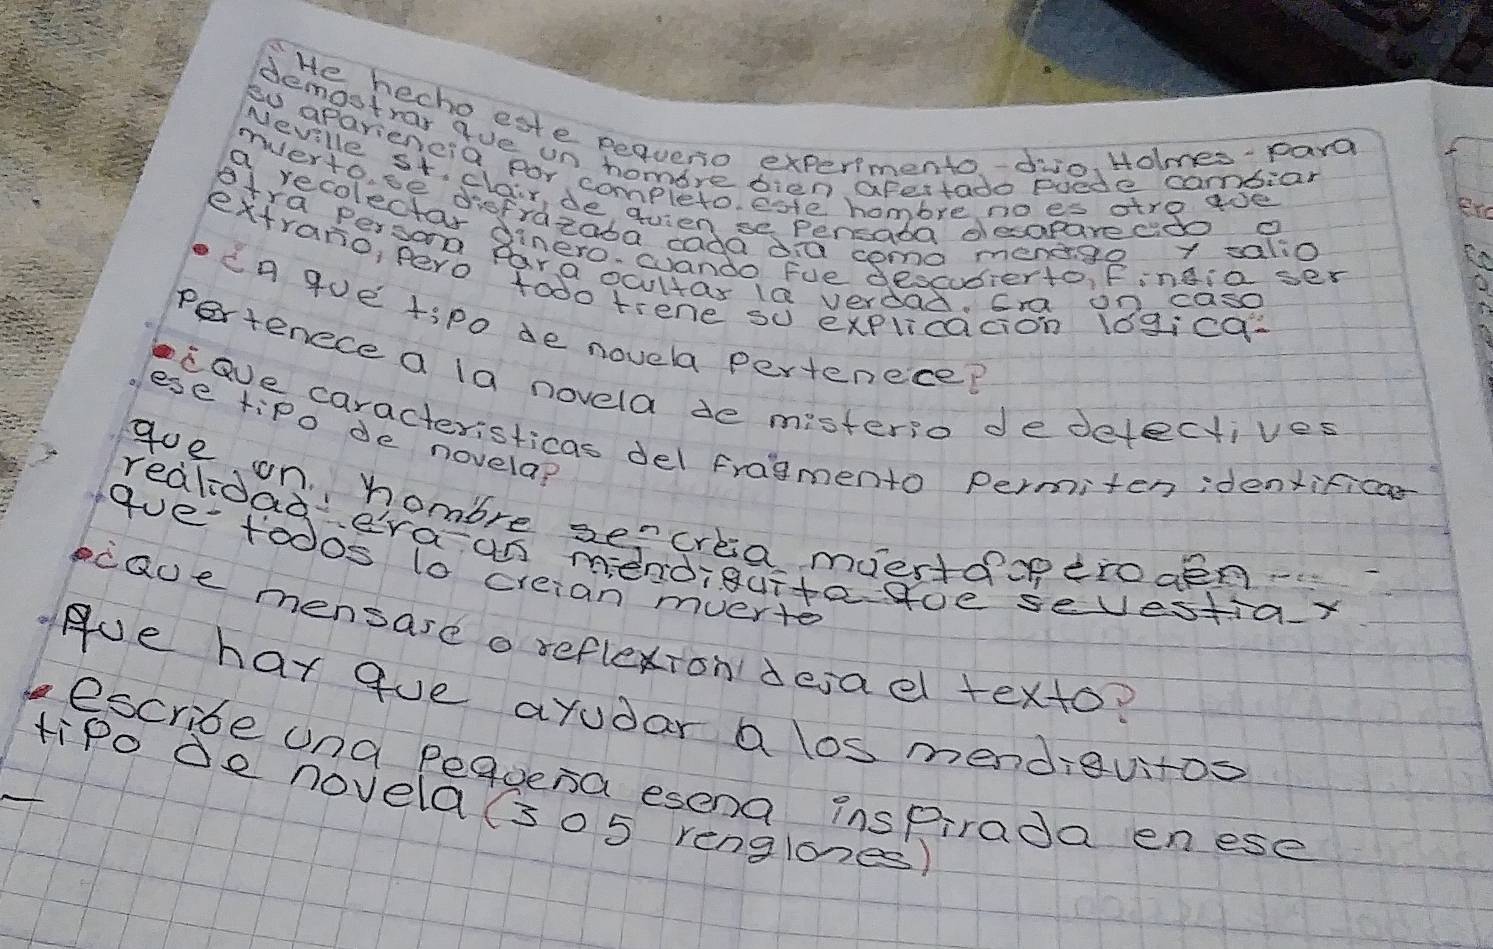 "He hecho este pequeño experimento -dijo Holmes- para
demostrar que un hombre bien afeitado puede cambiar
su apariencia por completo. este hombre, no es otro que
Neville st. clair, de quien se pensaba desaparecido o
muerto. se disfrazaba cada dia como mendigo y salio
a recolectar dinero. cuando fue descubierto, Fingia ser
otra persona para ocultar la verdad. Era un caso
extraño, pero todo tiene su explicación lógica.
• ¿A qué tipo de novela pertenece?
Pertenece a la novela de misterio de detectives
• ¿que caracteristicas del fragmento permiten identificar
ese tipo de novela?
que un hombre se creia muerto pero en
realidad era un mendiguito que se vestia y
que todos lo creian muerto
• ¿que mensaje o reflexion deja el texto?
que hay que ayudar a los mendiguitos
• escribe una pequeña esena inspirada en ese
tipo de novela (3 o 5 renglones)
-